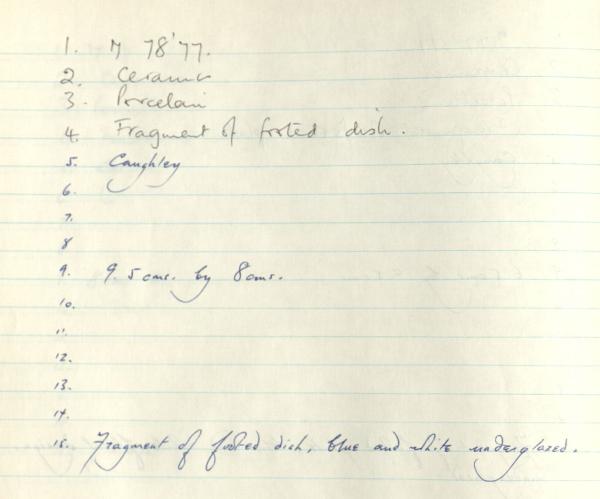 1. M 78'77.
2. Ceramic
3. Porcelain
4. Fragment of footed dish.
5. Caughley
6.
7.
8
9. 9.5cms. by 8cms.
10.
11.
12.
13.
14.
15. Fragment of footed dish, blue and white underglazed.